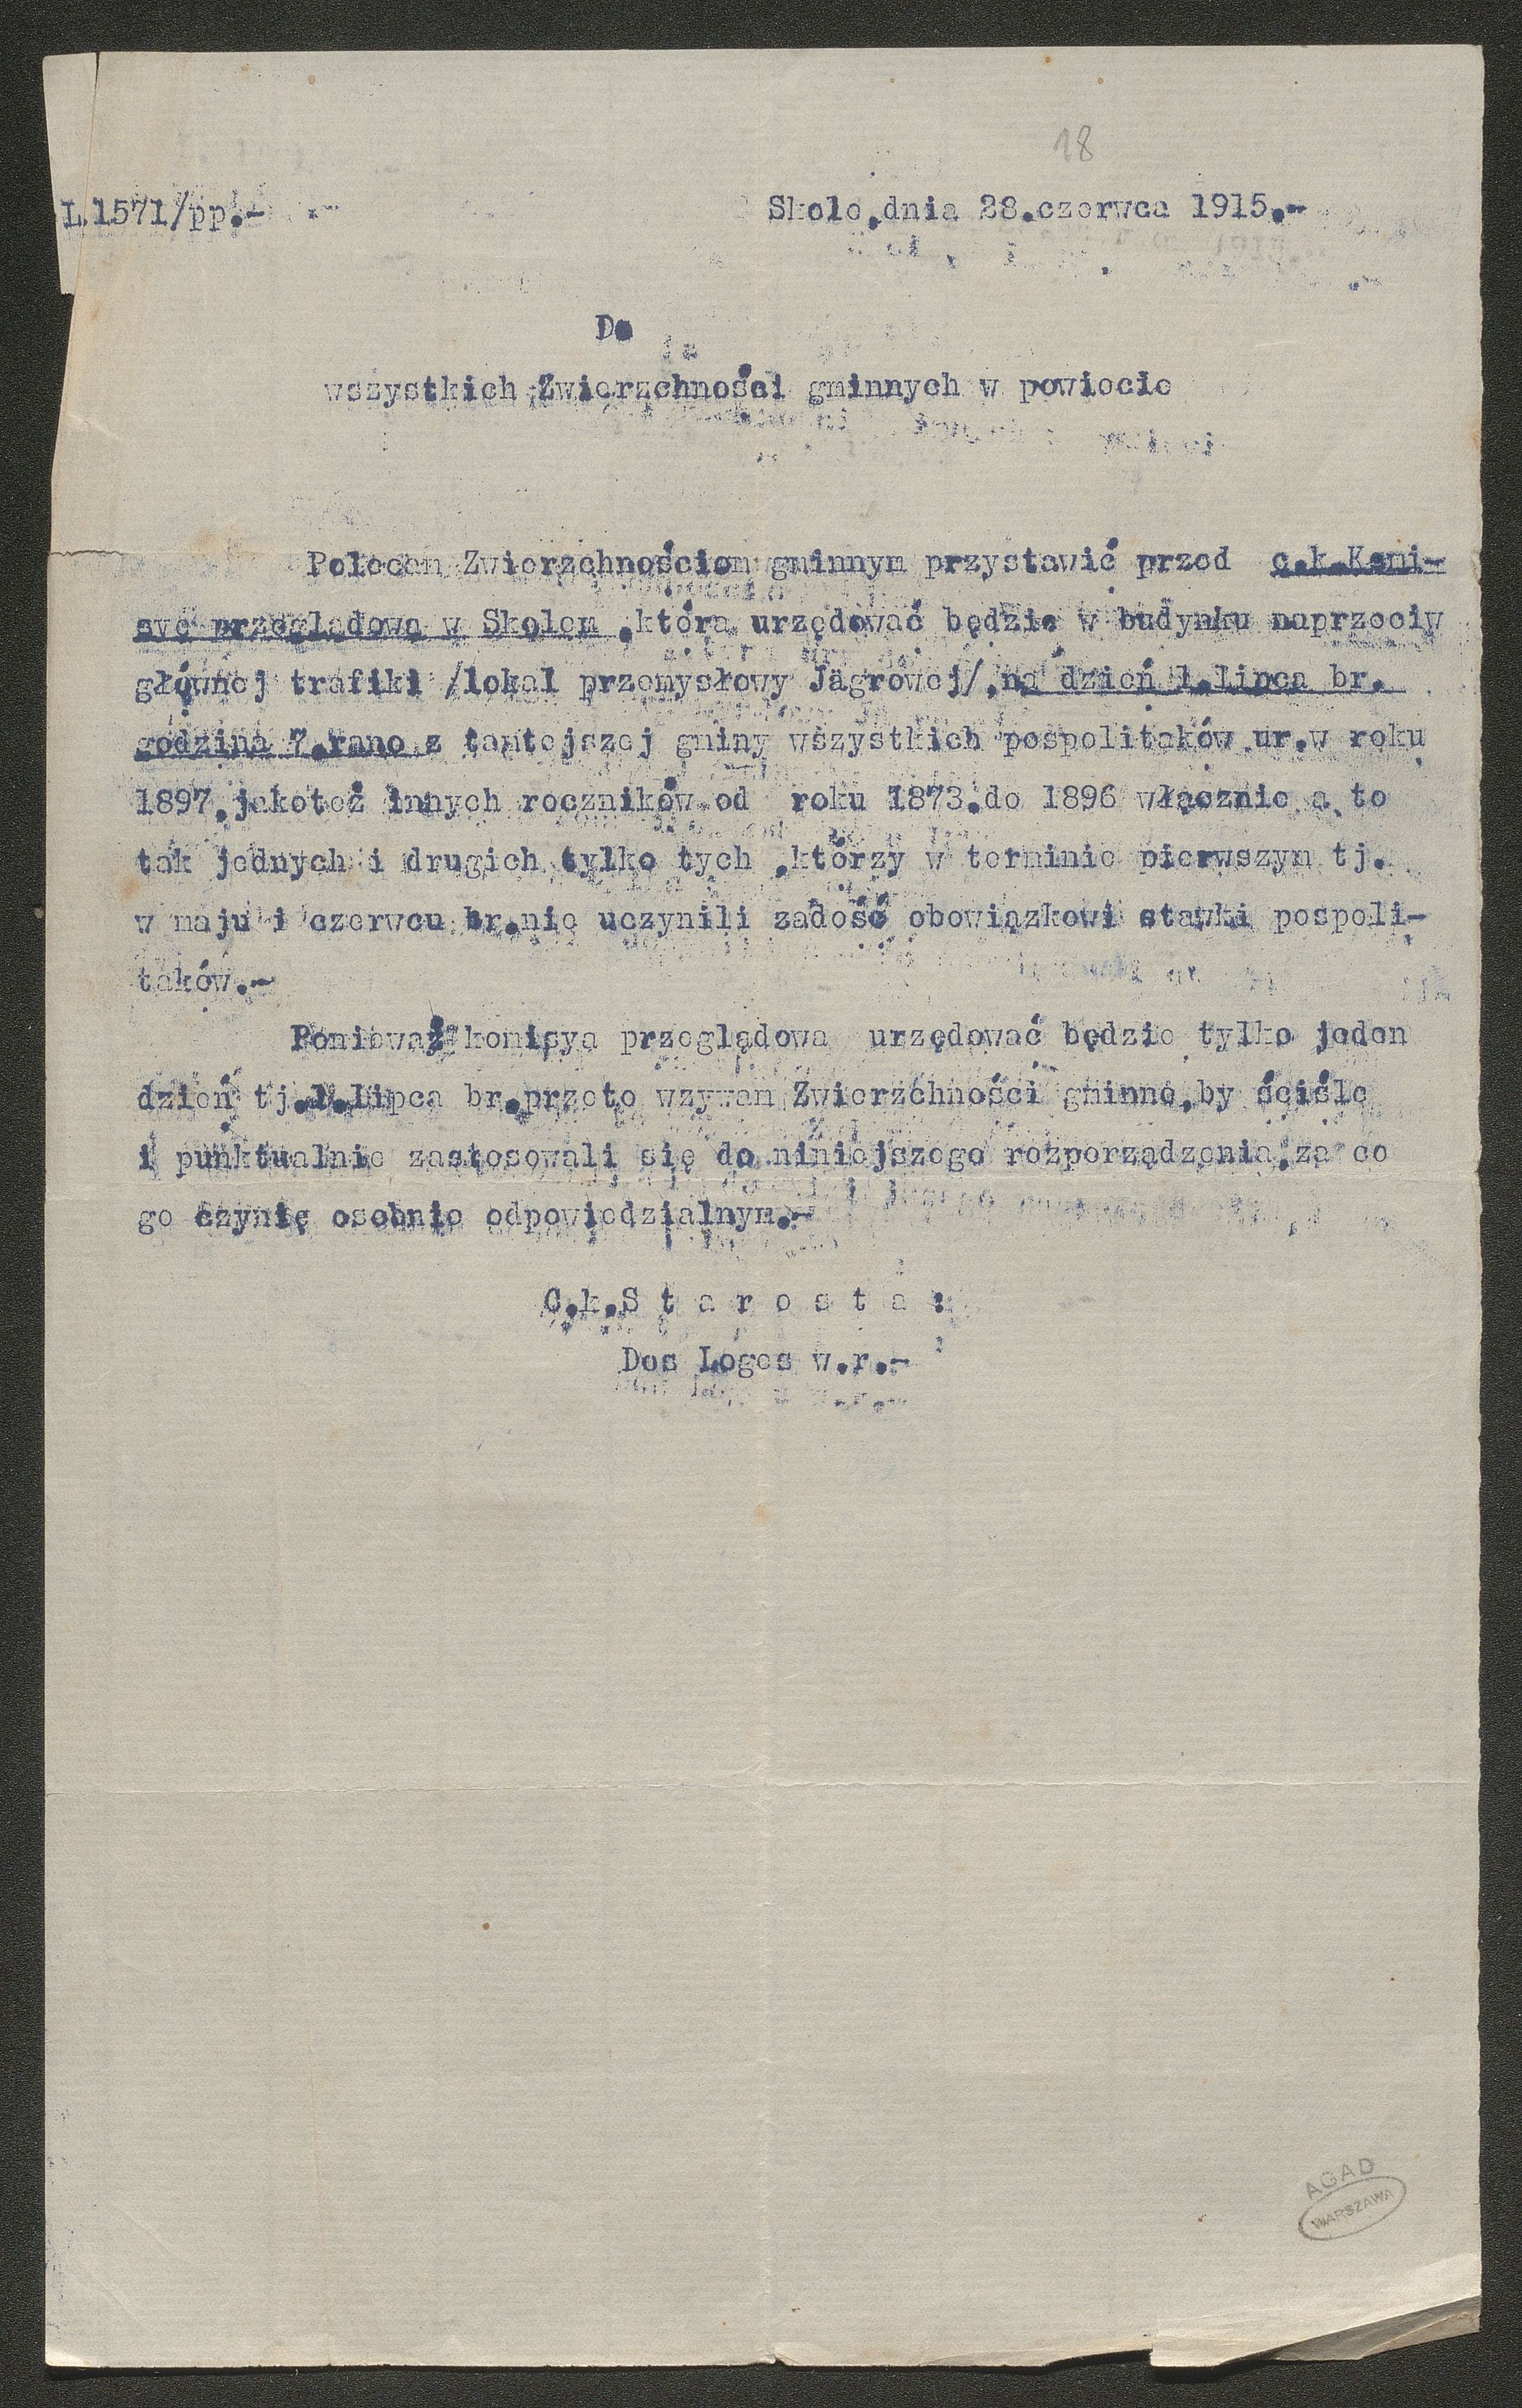 18
L.1571/pp.-
Skole,dnia 28.czerwca 1915.-
Do
wszystkich Zwierzchności gminnych w powiecie
Polecam Zwierzchnościom gminnym przystawić przed c.k.Komi-
syę przeglądową w Skolem ,która urzędować będzie w budynku naprzeciw
głównej trafiki /lokal przemysłowy Jägrowej/,na dzień 1.lipca br.
godzina 7.rano z tamtejszej gminy wszystkich pospolitaków ur.w roku
1897.jakoteż innych roczników od roku 1873.do 1896 włącznie a to
tak jednych i drugich tylko tych ,którzy w terminie pierwszym tj.
w maju i czerwcu br.nie uczynili zadość obowiązkowi stawki pospoli-
taków.-
Ponieważ komisya przeglądowa urzędować będzie tylko jeden
dzień tj.1.lipca br.przeto wzywam Zwierzchności gminne,by ściśle
i punktualnie zastosowali się do niniejszego rozporządzenia,za co
go czynię osobnie odpowiedzialnym.-
C.k.S t a r o s t a :
Des Loges w.r.-
AGAD
WARSZAWA